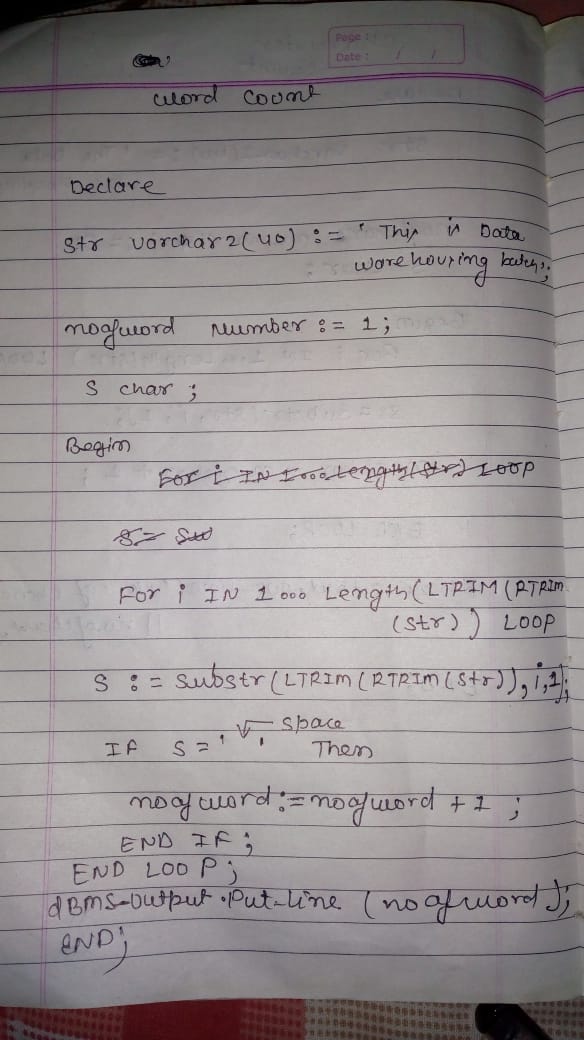 Page :
Date : / /
word count
Declare
Str varchar2(40) := ' This is Data
warehousing batch';
noofword Number := 1;
S char ;
Begin
For i IN 1...Length(Str) LOOP
S=
For i IN 1... Length(LTRIM(RTRIM
(Str)) LOOP
S := Substr(LTRIM(RTRIM(Str)),i,1);
space
IF S=' ' Then
noofword:=noofword +1 ;
END IF ;
END LOOP ;
dBMS-Output.Put-Line (noofword);
END;